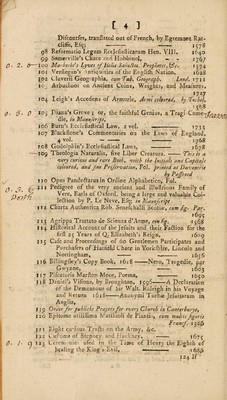 [ 4 ]
Discourses, translated out of French, by Egremont Rat-
cliffe, Esq; 1578
98 Reformatio Legum Ecclesiasticarum Hen. VIII. 1640
99 Somerville's Chace and Hobbinol, 1767
100 Lives of Prophets, &c. 1774
101 Verstegan's Antiquities of the English Nation. 1628
102 Claverii Geographia, cum Tab. Geograph. Lond. 1711
103 Arbuthnot on Ancient Coins, Weights, and Measures.
1727
104 Leigh's Accedens of Armorie, Arms coloured, by Tothel,
1568
105 Diana's Grove; or, the faithful Genius, a Tragi-Come-
die, in Manuscript,
106 Burn's Ecclesiastical Law, 2 vol.
107 Blackstone's Commentaries on the Laws of England,
4 vol. 1768
108 Godolphin's Ecclesiastical Laws, 1678
109 Theologia Naturalis, sive Liber Creaturarum. This is a
very curious and rare Book, with the Initials and Capitals
coloured, and in fine Preservation, Fol. printed at Daventrie
by Paffroed
110 Opus Pandectarum in Ordine Alphabetico, Fol.
111 Pedigree of the very ancient and illustrious Family of
Vere, Earls of Oxford, being a large and valuable Col-
lection by P. Le Neve, Esq; in Manuscript
112 Charta Authentica Rob. Seneschalli Scotiæ, cum fig. Par.
1695
113 Agrippa Trattato de Scienza d'Arme, cum fig. 1568
114 Historical Account of the Jesuits and their Faction for the
first 25 Years of Q. Elizabeth's Reign, 1609
115 Case and Proceedings of the Gentlemen Participants and
Purchasers of Hatfield Chace in Yorkshire, Lincoln and
Nottingham, 1656
116 Billingsley's Copy Book, 1618 —— Nero, Tragedie, par
Gwynne, 1603
117 Piscatoria Marston Moor, Poema, 1650
118 Daniel's Visions, by Broughton, 1596 —— A Declaration
of the Demeanour of Sir Walt. Raleigh in his Voyage
and Return 1618 —— Anonymi Turbæ Jesuitarum in
Anglia,
119 Order for publicke Prayers for every Church in Canterburye,
120 Epitome utilissima Matthioli de Plantis, cum multis figuris
Francf. 1586
121 Eight curious Tracts on the Army, &c.
122 Customs of Stepney and Hackney, 1675
123 Ceremonies used in the Time of Henry the Eighth of
healing the King's Evil, 1686